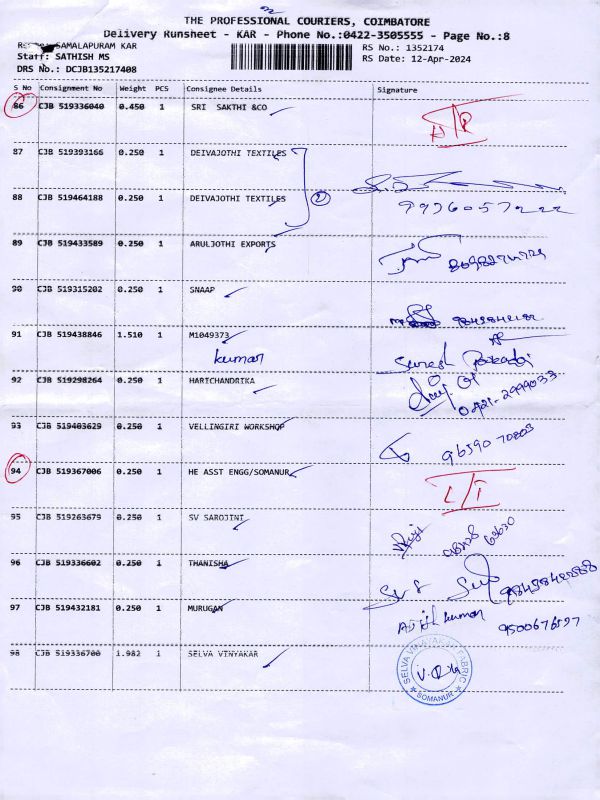 THE PROFESSIONAL COURIERS, COIMBATORE
Delivery Runsheet - KAR - Phone No.:0422-3505555 - Page No.:8
SAMALAPURAM KAR
RS No.: 1352174
Staff: SATHISH MS
RS Date: 12-Apr-2024
DRS No.: DCJB135217408
S No Consignment No Weight PCS Consignee Details Signature
86 CJB 519336040 0.450 1 SRI SAKTHI &CO
87 CJB 519393166 0.250 1 DEIVAJOTHI TEXTILES
88 CJB 519464188 0.250 1 DEIVAJOTHI TEXTILES 2
89 CJB 519433589 0.250 1 ARULJOTHI EXPORTS
90 CJB 519315202 0.250 1 SNAAP
91 CJB 519438846 1.510 1 M1049373
kumar Suresh
92 CJB 519298264 0.250 1 HARICHANDRIKA 0421-2999033
93 CJB 519403629 0.250 1 VELLINGIRI WORKSHOP 96590 70803
94 CJB 519367006 0.250 1 HE ASST ENGG/SOMANUR
95 CJB 519263679 0.250 1 SV SAROJINI
96 CJB 519336602 0.250 1 THANISHA
97 CJB 519432181 0.250 1 MURUGAN kumar 9500676597
98 CJB 519336700 1.982 1 SELVA VINYAKAR
SELVA VINAYAKAR FABRIC
SOMANUR